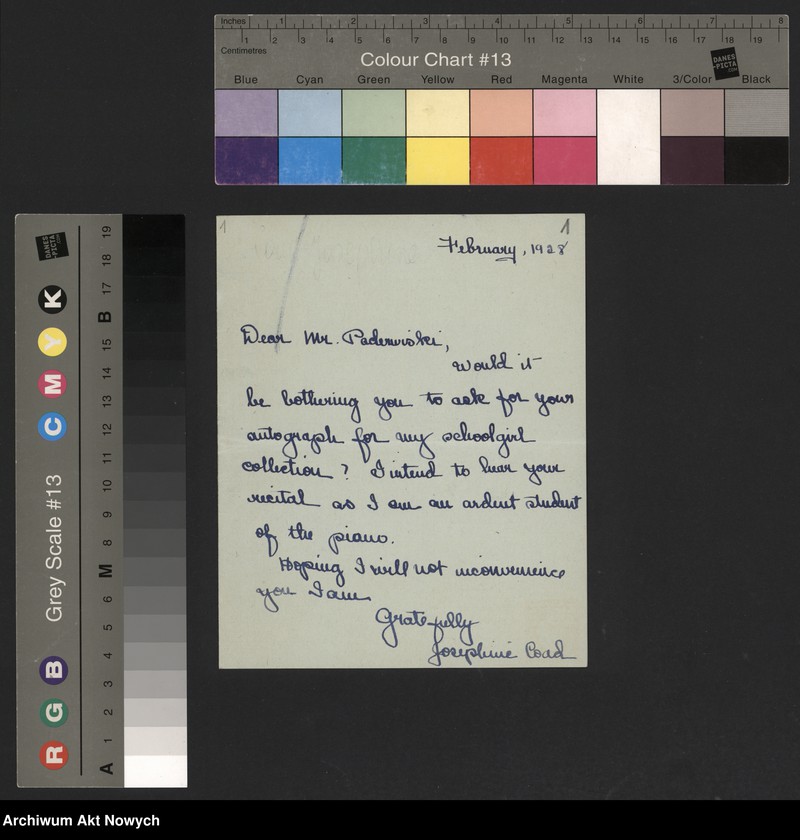 Inches 1 2 3 4 5 6 7 8
Centimetres 1 2 3 4 5 6 7 8 9 10 11 12 13 14 15 16 17 18 19
Colour Chart #13
DANES-PICTA.COM
Blue Cyan Green Yellow Red Magenta White 3/Color Black
1 1
February, 1928
Dear Mr. Paderwiski,
would it
be bothering you to ask for your
autograph for my schoolgirl
collection? I intend to hear your
recital as I am an ardent student
of the piano.
Hoping I will not inconvenience
you I am
Gratefully
Josephine Coad
DANES-PICTA.COM
R G B Grey Scale #13 C M Y K
A 1 2 3 4 5 6 M 8 9 10 11 12 13 14 15 B 17 18 19
Archiwum Akt Nowych